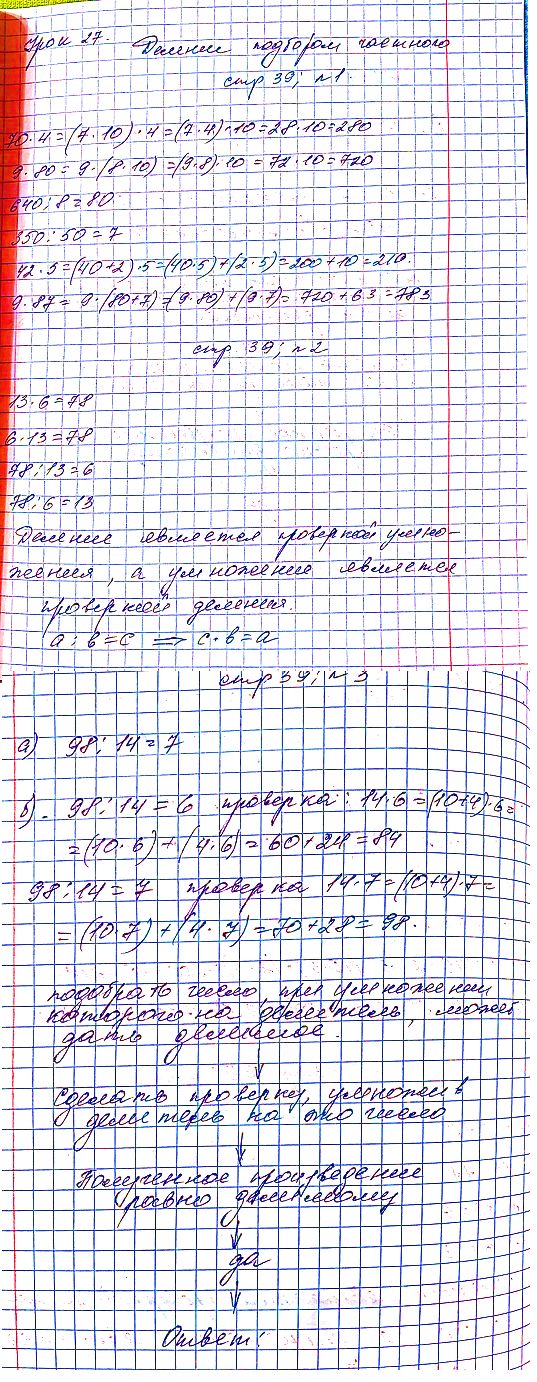 Урок 27. Деление подбором частного
стр 39; №1.
70·4=(7·10)·4=(7·4)·10=28·10=280
9·80=9·(8·10)=(9·8)·10=72·10=720
640:8=80
350:50=7
42·5=(40+2)·5=(40·5)+(2·5)=200+10=210.
9·87=9·(80+7)=(9·80)+(9·7)=720+63=783
стр 39; №2
13·6=78
6·13=78
78:13=6
78:6=13
Деление является проверкой умно-
жения, а умножение является
проверкой деления.
a:в=c ⟹ c·в=a
стр 39; №3
а) 98:14=7
б). 98:14=6 проверка: 14·6=(10+4)·6=
=(10·6)+(4·6)=60+24=84
98:14=7 проверка 14·7=(10+4)·7=
=(10·7)+(4·7)=70+28=98.
подобрать число, при умножении
которого на делитель, может
дать делимое.
↓
Сделать проверку, умножив
делитель на это число
↓
Полученное произведение
равно делимому
↓
да
↓
Ответ: